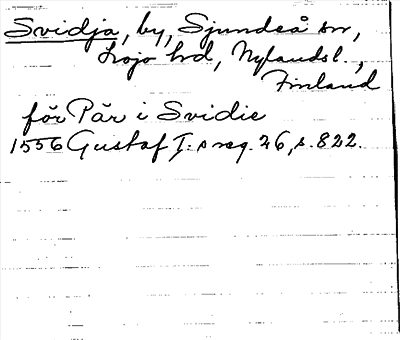 Svidja, by, Sjundeå sn,
Lojo hd, Nylandsl.,
Finland
för Pär i Svidie
1556 Gustaf I:s reg. 26, s. 822.